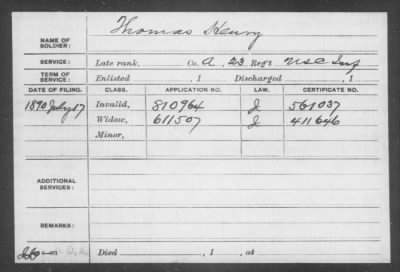 NAME OF SOLDIER: Thomas Henry
SERVICE: Late rank, Co. A, 23 Reg't U S C Inf
TERM OF SERVICE: Enlisted , 1 Discharged , 1
DATE OF FILING. CLASS. APPLICATION NO. LAW. CERTIFICATE NO.
1890 July 17 Invalid, 810964 J 561037
Widow, 611507 J 411646
Minor,
ADDITIONAL SERVICES:
REMARKS:
Died , 1 , at